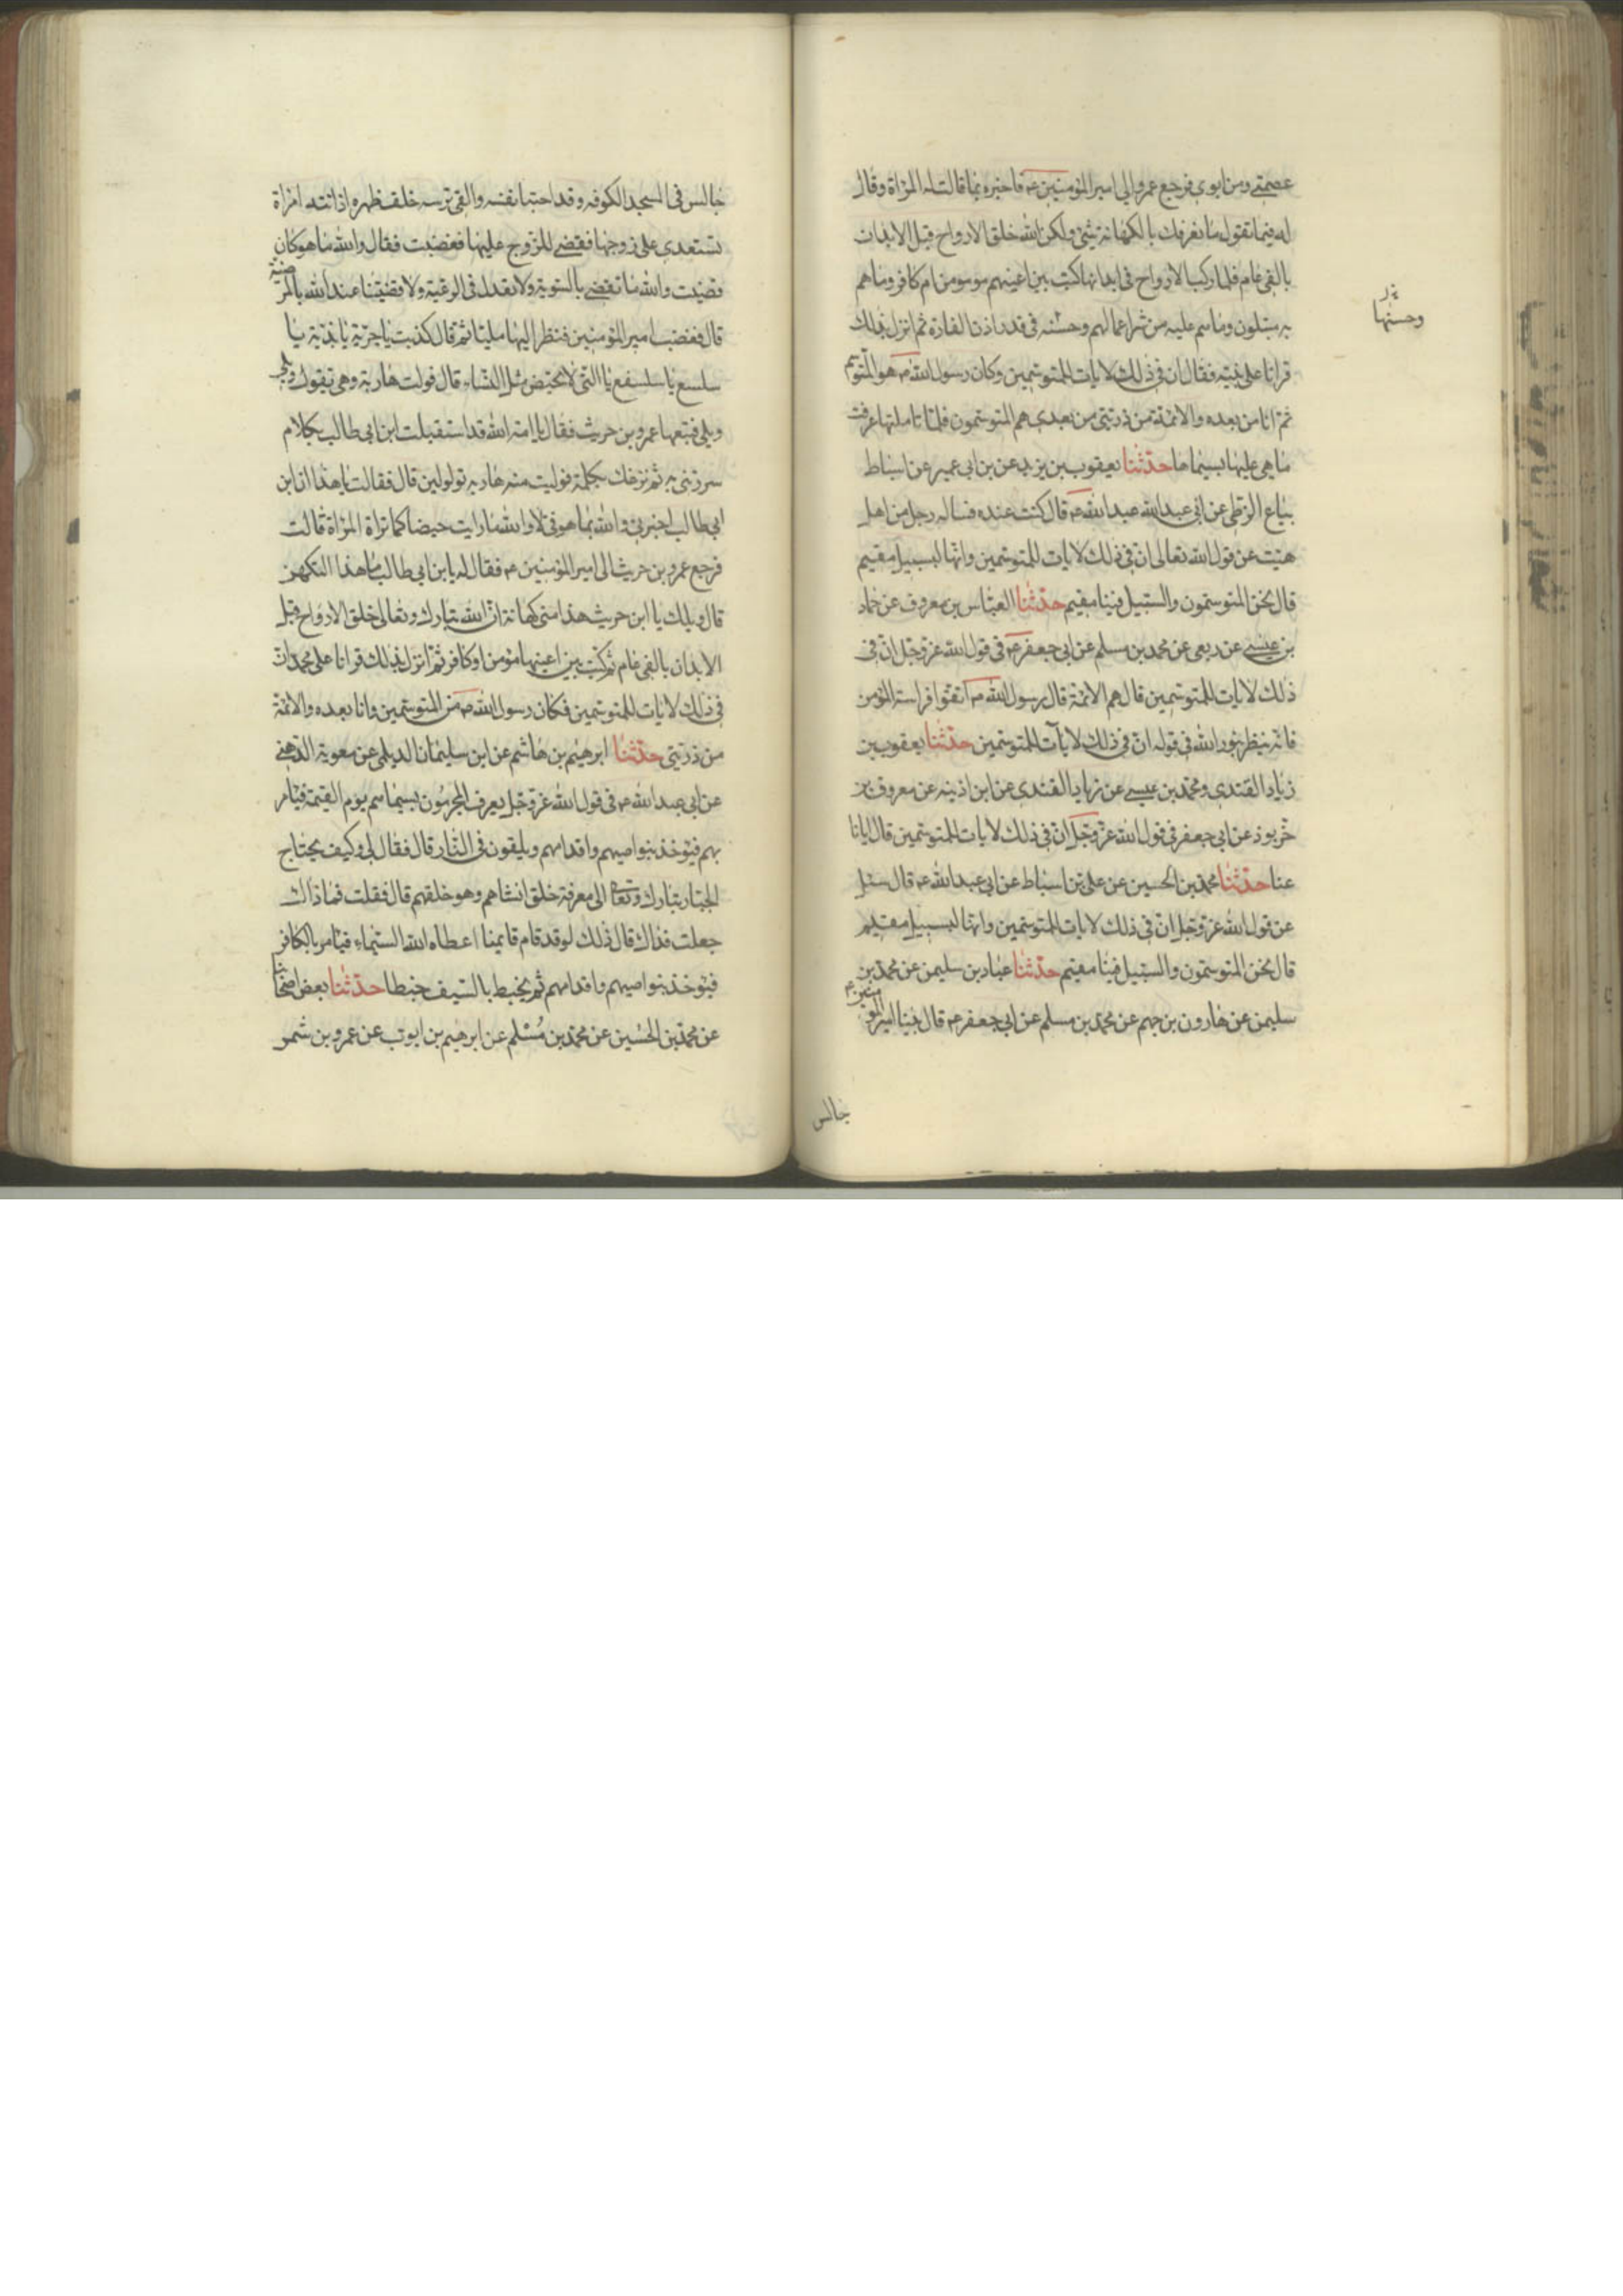 عصمتى ومن ابوى فرجع عمرو الى امير المؤمنين ع فاخبره بما قالت له المرأة وقال
له فيما تقول ما نعرفك بالكهانة بشئ ولكن الله خلق الارواح قبل الابدان
بالفى عام فلما ركب الارواح فى ابدانها كتب بين اعينهم موسومن ام كافر وما هم
به مبتلون وما هم عليه من شر اعمالهم وحسنه فى قدر اذن الفارة ثم انزل بذلك
وحسنها
قرانا على نبيه فقال ان فى ذلك لايات للمتوسمين وكان رسول الله ص هو المتوسم
ثم انا من بعده والائمة من ذريتى من بعدى هم المتوسمون فلما تاملتها عرفت
ما هى عليها بسيماها حدثنا يعقوب بن يزيد عن بن ابى عمير عن اسباط
بياع الزطى عن ابى عبد الله عبد الله ع قال كنت عنده فساله رجل من اهل
هيت عن قول الله تعالى ان فى ذلك لايات للمتوسمين وانها لبسبيل مقيم
قال نحن المتوسمون والسبيل فينا مقيم حدثنا العباس بن معروف عن حماد
بن عيسى عن ربعى عن محمد بن مسلم عن ابى جعفر ع فى قول الله عز وجل ان فى
ذلك لايات للمتوسمين قال هم الائمة قال رسول الله ص اتقوا فراسة المؤمن
فانه ينظر بنور الله فى قوله ان فى ذلك لايات للمتوسمين حدثنا يعقوب بن
زياد القندى ومحمد بن عيسى عن زياد القندى عن ابن اذينه عن معروف بن
خربوذ عن ابى جعفر فى قول الله عز وجل ان فى ذلك لايات للمتوسمين قال ايانا
عنا حدثنا محمد بن الحسين عن على بن اسباط عن ابى عبد الله ع قال سئل
عن قول الله عز وجل ان فى ذلك لايات للمتوسمين وانها لبسبيل مقيم
قال نحن المتوسمون والسبيل فينا مقيم حدثنا عباد بن سليمن عن محمد بن
سليمن عن هارون بن جهم عن محمد بن مسلم عن ابى جعفر ع قال بينا امير المؤمنين ع
جالس
جالس فى المسجد الكوفه وقد احتبا بفسه والقى ترسه خلف ظهره اذ اتته امرأة
تستعدى على زوجها فقضى للزوج عليها فغضبت فقال والله ما هو كان
قضيت والله ما تقضى بالسوية ولا تعدل فى الرعية ولا قضيتنا عند الله بالمرضية
قال فغضب امير المؤمنين فنظر اليها مليا ثم قال كذبت يا جرية يا بذية يا
سلسع يا سلسفع يا التى لا تحيض مثل النساء قال فولت هاربة وهى تقول ويلى
ويلى فتبعها عمرو بن حريث فقال يا امة الله قد استقبلت ابن ابى طالب بكلام
سررتنى به ثم نزغك بكلمة فوليت منه هاربه تولولين قال فقالت يا هذا ان ابن
ابى طالب اخبرنى والله بما هو فى لا والله ما رايت حيضا كما تراه المرأة قالت
فرجع عمرو بن حريث الى امير المؤمنين ع فقال له يا بن ابى طالب ما هذا التكهن
قال ويلك يا ابن حريث هذا منى كهانة ان الله تبارك وتعالى خلق الارواح قبل
الابدان بالفى عام ثم كتب بين اعينها مؤمن او كافر ثم انزل بذلك قرانا على محمد ان
فى ذلك لايات للمتوسمين فكان رسول الله ص من المتوسمين وانا بعده والائمة
من ذريتى حدثنا ابرهيم بن هاشم عن ابن سليمان الديلمى عن معوية الدهنى
عن ابى عبد الله ع فى قول الله عز وجل يعرف المجرمون بسيماهم يوم القيمة فيامر
بهم فيوخذ بنواصيهم واقدامهم ويلقون فى النار قال فقال لى وكيف يحتاج
الجبار تبارك وتعالى الى معرفة خلق انشاهم وهو خلقهم قال فقلت فما ذاك
جعلت فداك قال ذلك لو قد قام قايمنا اعطاه الله السيماء فيامر بالكافر
فيوخذ بنواصيهم واقدامهم ثم يخبط بالسيف خبطا حدثنا بعض اصحابنا
عن محمد بن الحسين عن محمد بن مسلم عن ابرهيم بن ايوب عن عمرو بن شمر